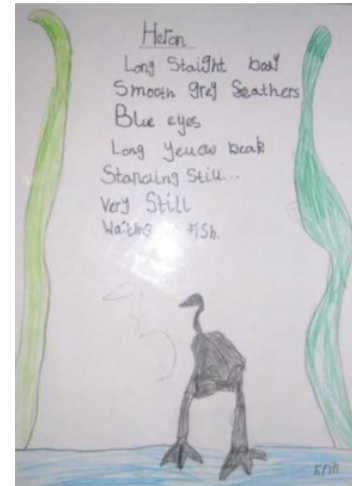 Heron
Long Staight
Smooth grey Seathers
Blue eyes
Long yellow beak
Standing Still...
Very Still
Waiting fish.